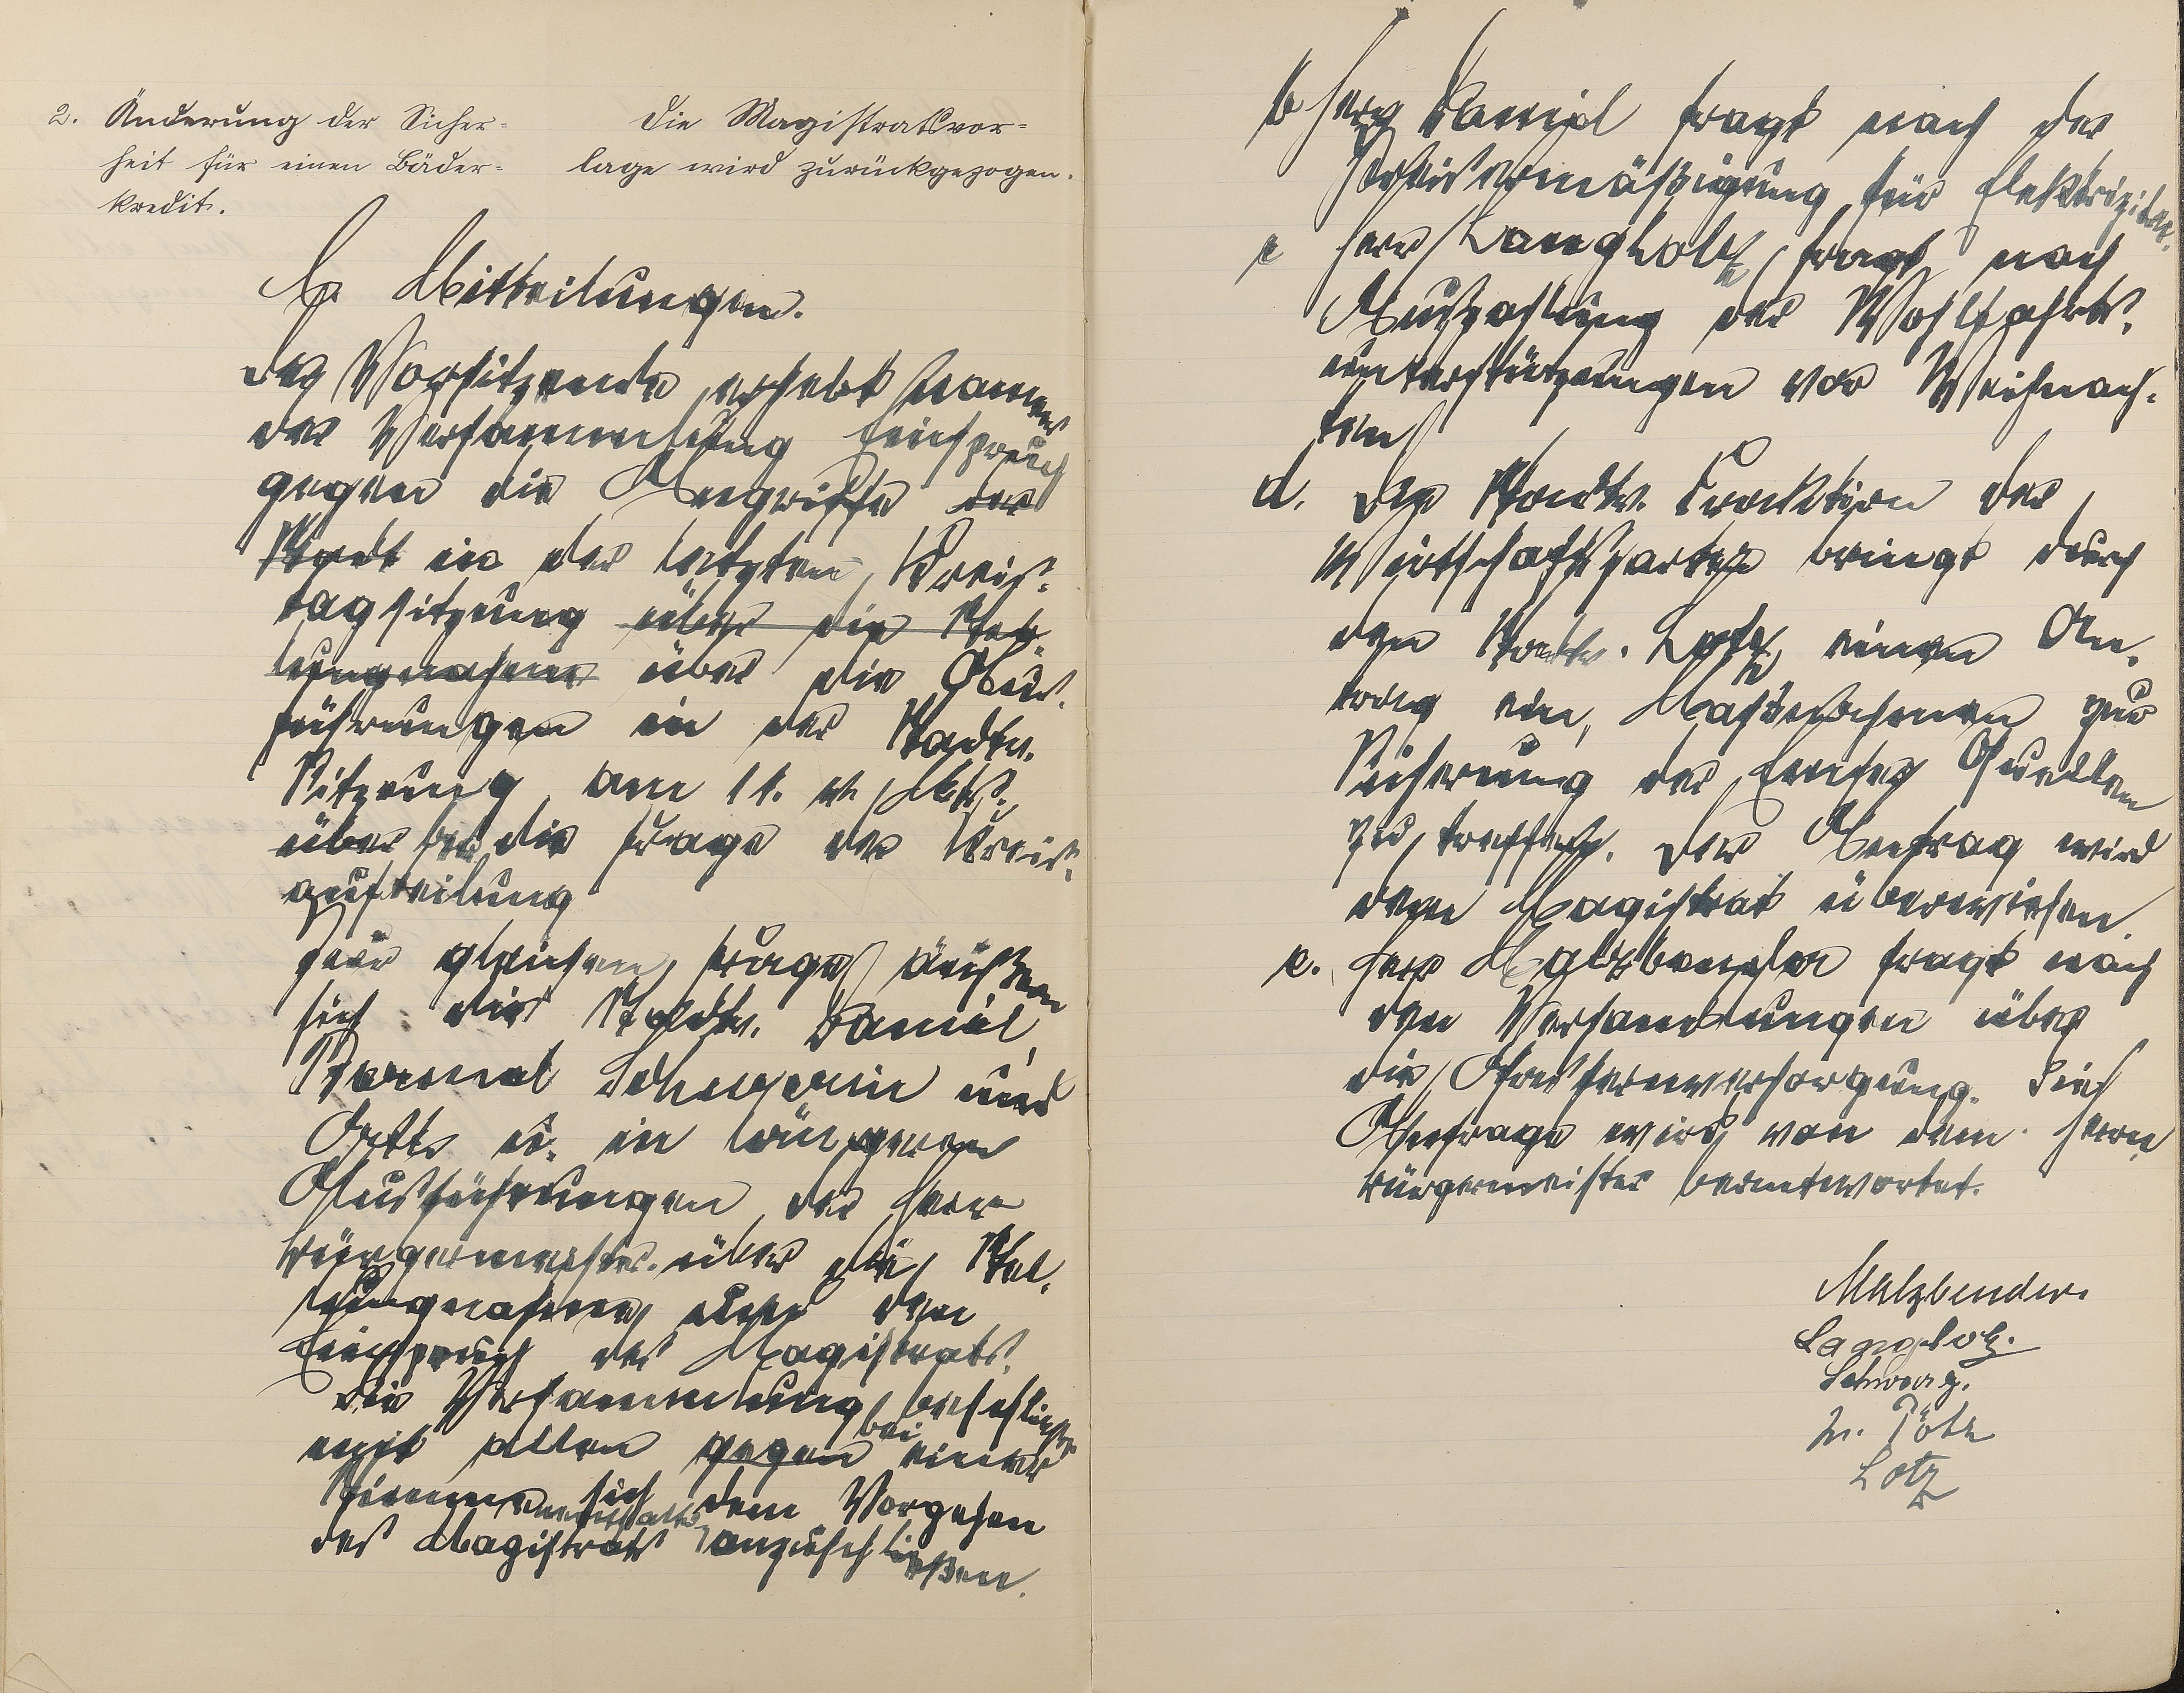 2. Änderung der Sicher=
heit für einen Bäder=
kredit.
Die Magistratsvor=
lage wird zurückgezogen.
Mitteilungen.
Der Vorsitzende erhebt namens
der Versammlung Einspruch
gegen die Angriffe der
Stadt in der letzten Kreis=
tagsitzung über die Stel=
lungnahme über die Aus=
führungen in der Stadtv.
Sitzung am 11. v. Mts.
über die Frage der Kreis=
aufteilung
Zur gleichen Frage äußern
sich die Stadtv. Daniel,
Schupp und
Orth u. in längeren
Ausführungen der Herr
Bürgermeister über die Stel=
lungnahme und den
Einspruch des Magistrats.
Die Versammlung beschließt
mit allen gegen bei einer
Stimmenenthaltung sich dem Vorgehen
des Magistrats anzuschließen.
b Herr Daniel fragt nach der
Preisermäßigung für Elektrizität.
c Herr Langholz fragt nach
Auszahlung der Wohlfahrts=
unterstützungen vor Weihnach=
ten
d. Die Stadtv. Fraktion der
Wirtschaftspartei bringt durch
den Stadtv. Lotz einen An=
trag ein, Maßnahmen zur
Sicherung der Emser Quellen
zu treffen. Der Antrag wird
dem Magistrat überwiesen.
e. Herr Malzbender fragt nach
den Verhandlungen über
die Gasfernversorgung. Die
Anfrage wird von dem Herrn
Bürgermeister beantwortet.
Malzbender.
Langholz.
Schwarz.
Lotz